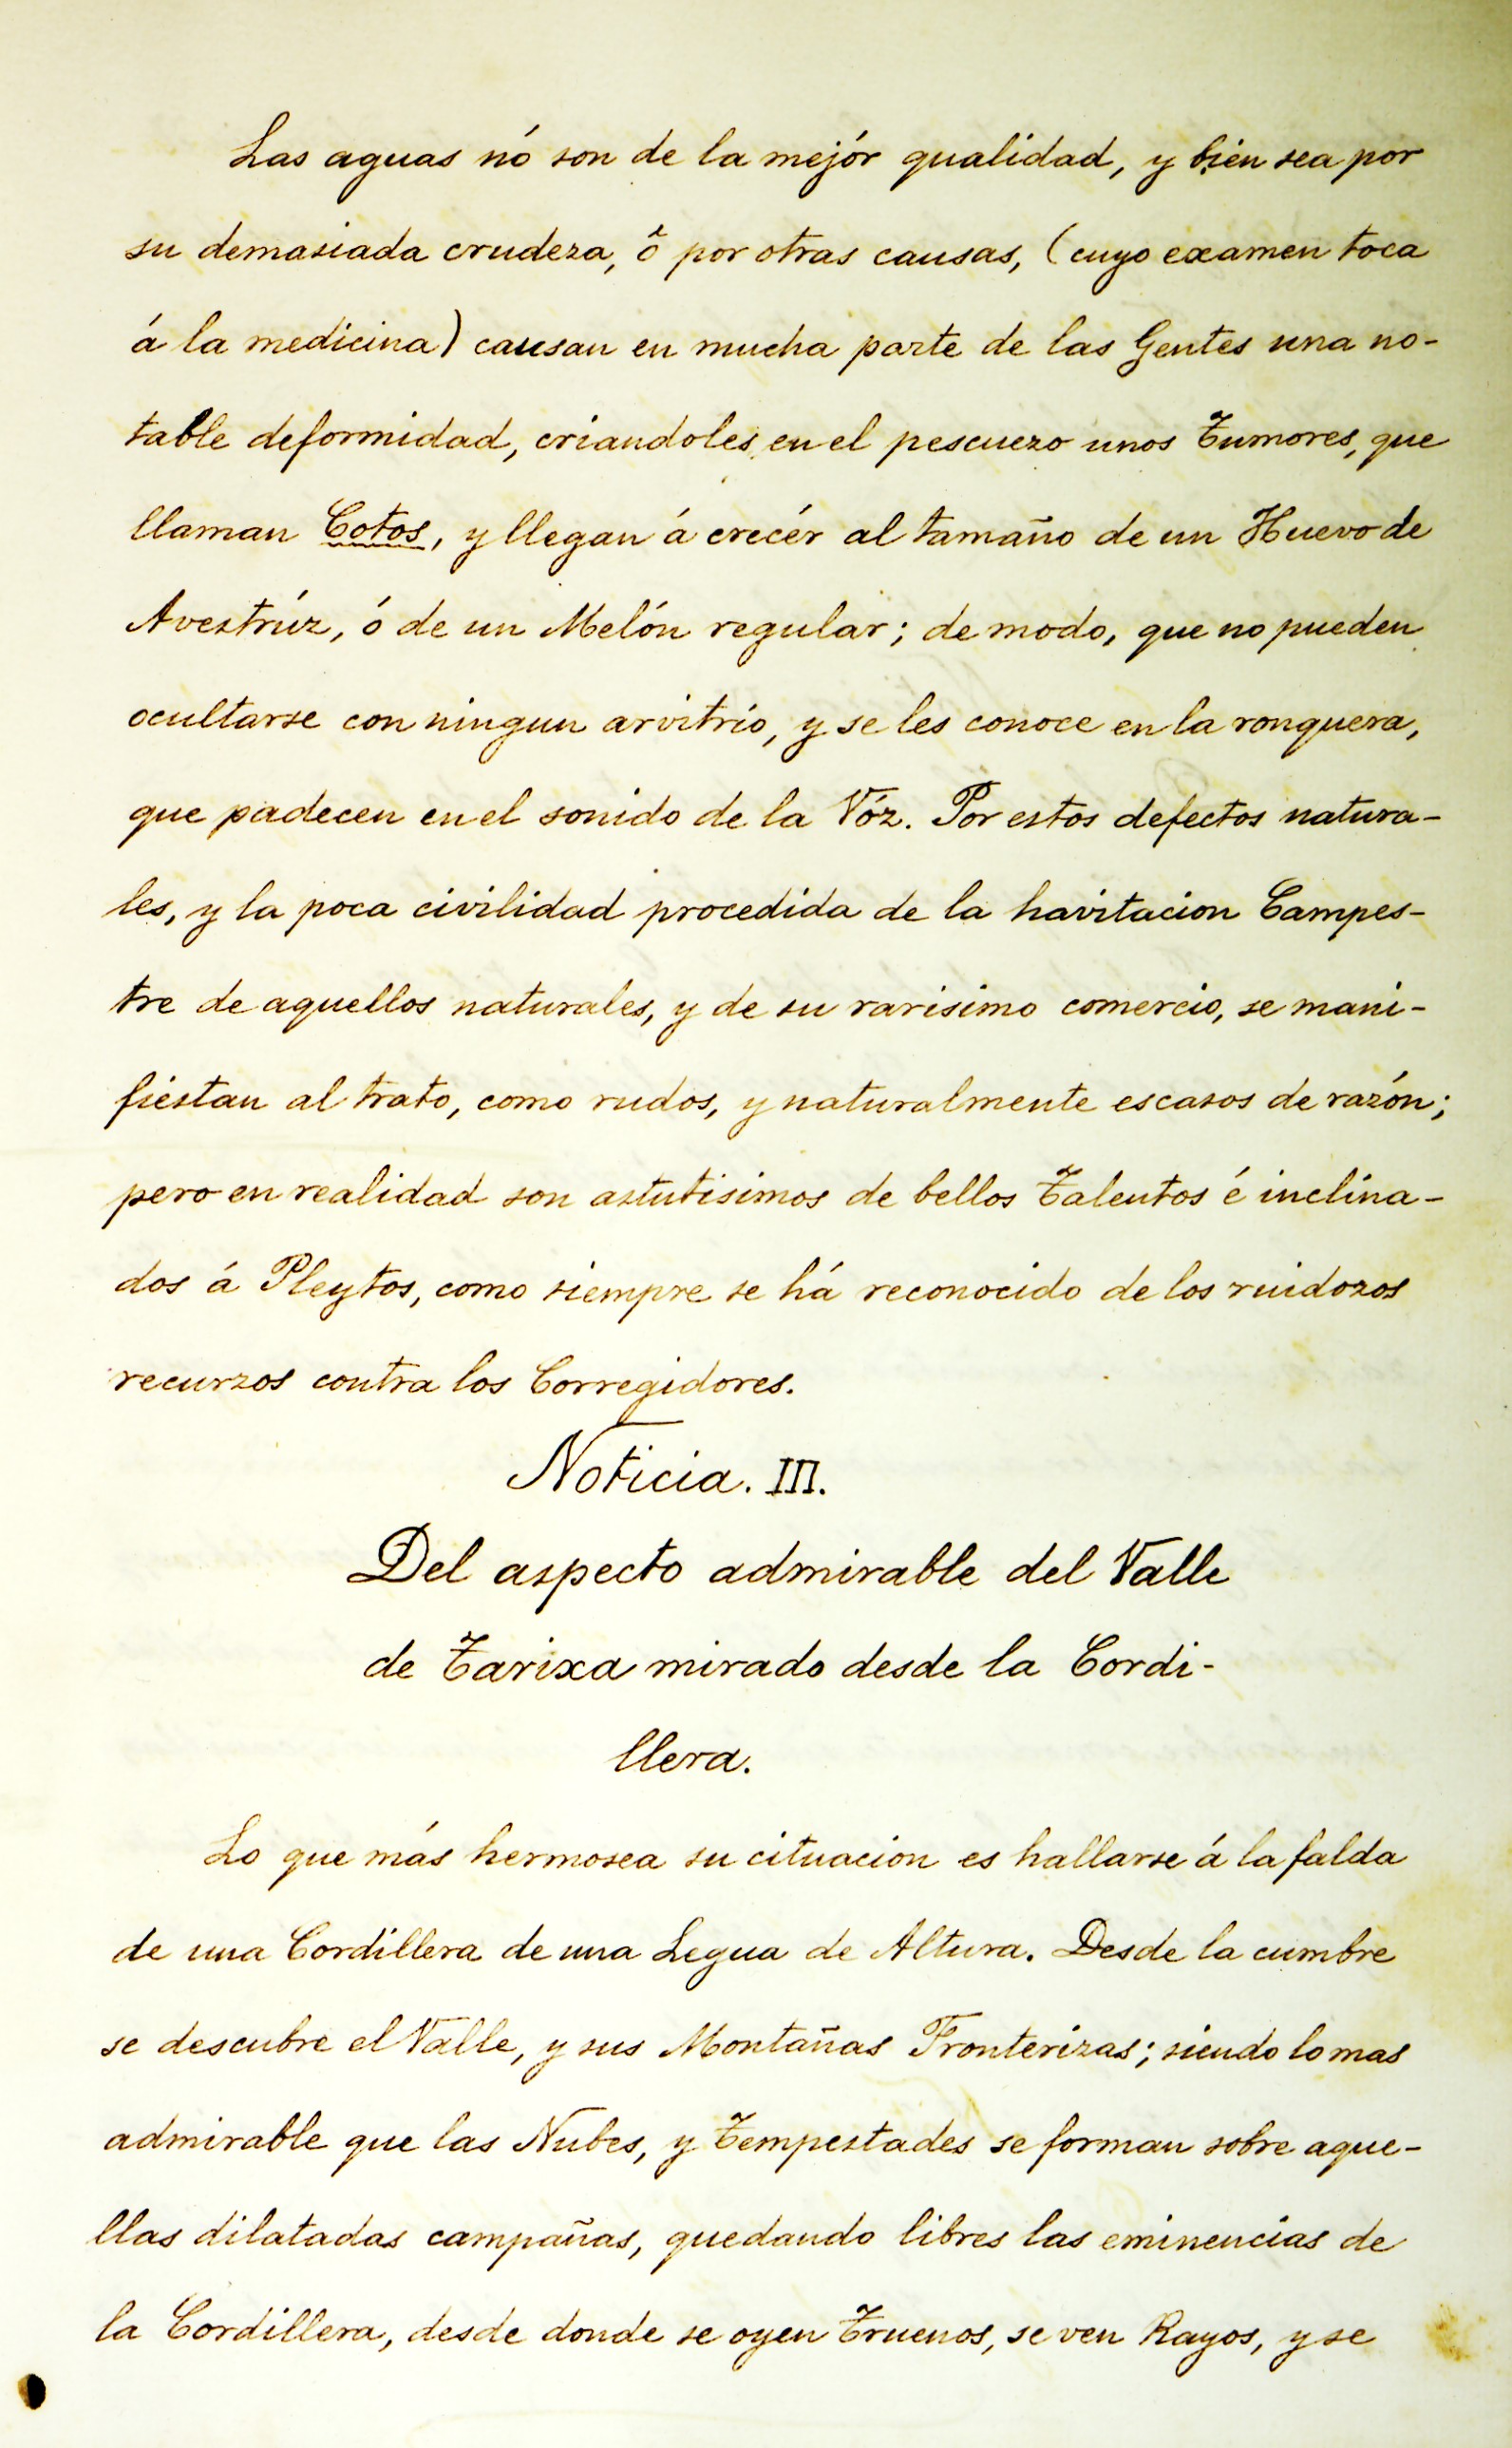 Las aguas nó son de la mejór qualidad, y bien sea por
su demasiada crudeza, ô por otras causas, (cuyo examen toca
á la medicina) causan en mucha parte de las Gentes una no-
table deformidad, criandoles en el pescuezo unos Tumores, que
llaman Cotos, y llegan á crecér al tamaño de un Huevo de
Avestrúz, ó de un Melón regular; de modo, que no pueden
ocultarse con ningun arvitrio, y se les conoce en la ronquera,
que padecen en el sonido de la Vóz. Por estos defectos natura-
les, y la poca civilidad procedida de la havitacion Campes-
tre de aquellos naturales, y de su rarisimo comercio, se mani-
fiestan al trato, como rudos, y naturalmente escasos de razón;
pero en realidad son astutisimos de bellos Talentos é inclina-
dos á Pleytos, como siempre se há reconocido de los ruidozos
recurzos contra los Corregidores.
Noticia. III.
Del aspecto admirable del Valle
de Tarixa mirado desde la Cordi-
llera.
Lo que más hermosea su cituacion es hallarse á la falda
de una Cordillera de una Legua de Altura. Desde la cumbre
se descubre el Valle, y sus Montañas Fronterizas; siendo lo mas
admirable que las Nubes, y Tempestades se forman sobre aque-
llas dilatadas campañas, quedando libres las eminencias de
la Cordillera, desde donde se oyen Truenos, se ven Rayos, y se